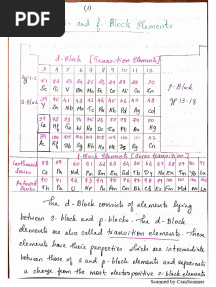 PDF
(1)
d- and f- Block Elements
d-Block [Transition Elements]
3 4 5 6 7 8 9 10 11 12
21 22 23 24 25 26 27 28 29 30
Sc Ti V Cr Mn Fe Co Ni Cu Zn
p-Block
39 40 41 42 43 44 45 46 47 48
S-Block
Y Zr Nb Mo Tc Ru Rh Pd Ag Cd
gp 13-18
La Hf Ta W Re Os Ir Pt Au Hg
f-Block Elements
58 59 60 61 62 63 64 65 66 67 68 69 70 71
Series Ce Pr Nd Pm Sm Eu Gd Tb Dy Ho Er Tm Yb Lu
90 91 92 93 94 95 96 97 98 99 100 101 102 103
Series Th Pa U Np Pu Am Cm Bk Cf Es Fm Md No Lr
The d-Block consists of elements lying
between s-block and p-blocks. The d-Block
elements are also called transition elements. These
elements have their properties which are intermediate
between those of s and p-block elements and represents
a change from the most electropositive s-block elements
Scanned by CamScanner